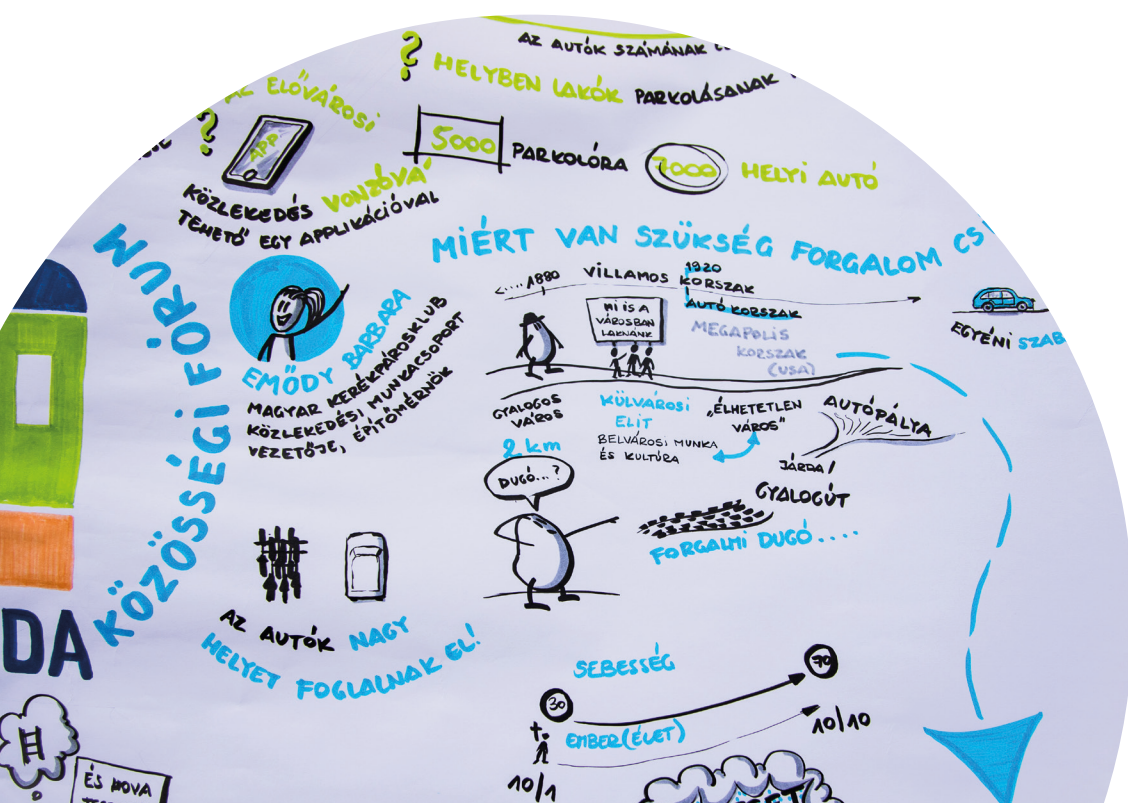 AZ AUTÓK SZÁMÁNAK
? HELYBEN LAKÓK PARKOLÁSÁNAK
? AZ ELŐVÁROSI
APP
KÖZLEKEDÉS VONZÓVÁ
TEHETŐ EGY APPLIKÁCIÓVAL
5000 PARKOLÓRA
7000 HELYI AUTÓ
KÖZÖSSÉGI FÓRUM
DA
EMŐDY BARBARA
MAGYAR KERÉKPÁROSKLUB
KÖZLEKEDÉSI MUNKACSOPORT
VEZETŐJE, ÉPÍTŐMÉRNÖK
MIÉRT VAN SZÜKSÉG FORGALOM CS
1880 VILLAMOS KORSZAK
1920
AUTÓ KORSZAK
MEGAPOLIS
KORSZAK
(USA)
MI IS A
VÁROSBAN
LAKNÁNK
EGYÉNI SZAB
GYALOGOS
VÁROS
2 km
KÜLVÁROSI
ELIT
BELVÁROSI MUNKA
ÉS KULTÚRA
„ÉLHETETLEN
VÁROS"
AUTÓPÁLYA
JÁRDA/
GYALOGÚT
DUGÓ...?
FORGALMI DUGÓ....
AZ AUTÓK NAGY
HELYET FOGLALNAK EL!
SEBESSÉG
30
70
EMBER(ÉLET)
10/1
10/10
ÉS HOVA